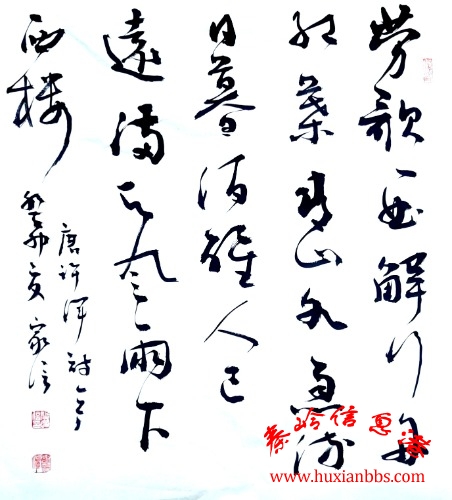 劳歌一曲解行舟
红葉青山水急流
日暮酒醒人已
遠满天风雨下
西楼
唐许浑诗一首
癸卯夏 家信
www.huxianbbs.com